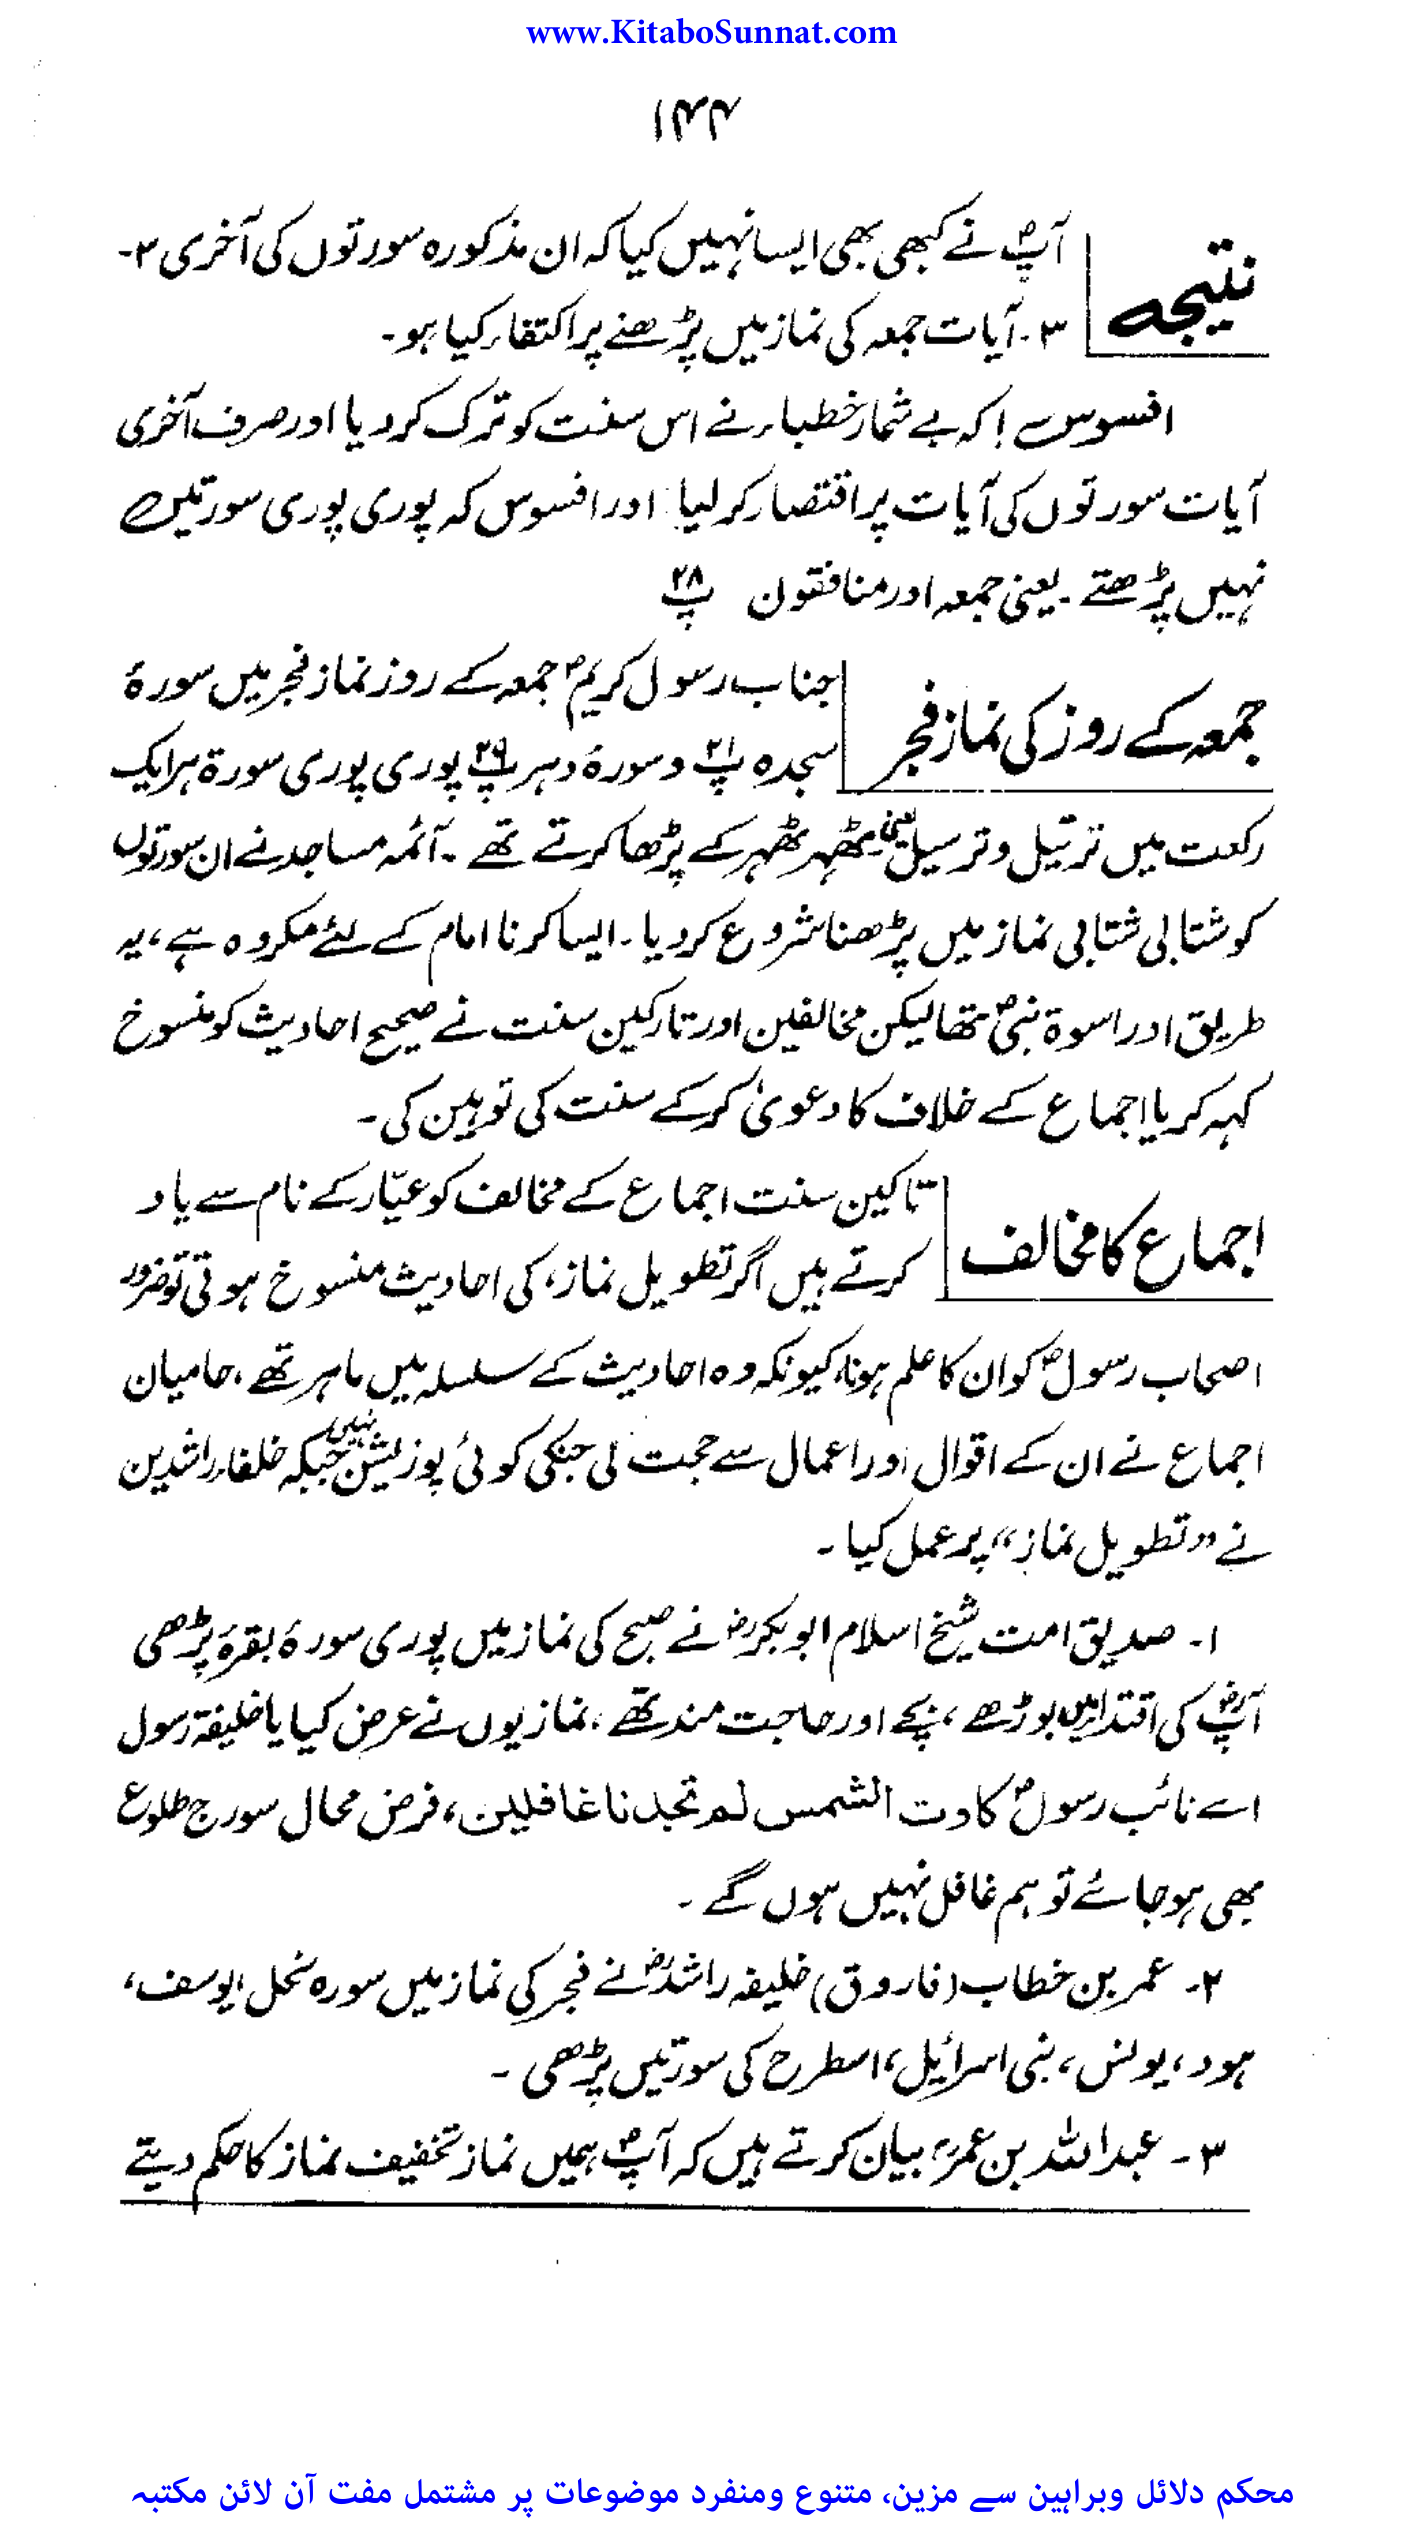 www.KitaboSunnat.com
۱۴۴
نتیجہ
آپؐ نے کبھی بھی ایسا نہیں کیا کہ ان مذکورہ سورتوں کی آخری ۲-
۳- آیات جمعہ کی نماز میں پڑھنے پر اکتفاء کیا ہو۔
افسوس ہے! کہ بے شمار خطباء نے اس سنت کو ترک کردیا اور صرف آخری
آیات سورتوں کی آیات پر اقتصار کرلیا اور افسوس کہ پوری پوری سورتیں
نہیں پڑھتے۔ یعنی جمعہ اور منافقون پ۲۸
جمعہ کے روز کی نماز فجر
جناب رسول کریمؐ جمعہ کے روز نماز فجر میں سورۂ
سجدہ پ۲۱ و سورۂ دہر پ۲۹ پوری پوری سورۃ ہر ایک
رکعت میں ترتیل و ترسیل یعنی ٹھہر ٹھہر کے پڑھا کرتے تھے۔ آئمہ مساجد نے ان سورتوں
کو شتابی شتابی نماز میں پڑھنا شروع کردیا۔ ایسا کرنا امام کے لئے مکروہ ہے، یہ
طریق اور اسوۃ نبیؐ تھا لیکن مخالفین اور تارکین سنت نے صحیح احادیث کو منسوخ
کہہ کر یا اجماع کے خلاف کا دعویٰ کرکے سنت کی توہین کی۔
اجماع کا مخالف
تاکین سنت اجماع کے مخالف کو عیّار کے نام سے یاد
کرتے ہیں اگر تطویل نماز، کی احادیث منسوخ ہوتی تو ضرور
اصحاب رسولؐ کو ان کا علم ہوتا، کیونکہ وہ احادیث کے سلسلہ میں ماہر تھے، حامیان
اجماع نے ان کے اقوال اور اعمال سے حجت لی جنکی کوئی پوزیشن نہیں جبکہ خلفاء راشدین
نے "تطویل نماز" پر عمل کیا۔
۱۔ صدیق امت شیخ اسلام ابوبکرؓ نے صبح کی نماز میں پوری سورۂ بقرہ پڑھی
آپؓ کی اقتدا میں بوڑھے، بچے اور حاجت مند تھے، نمازیوں نے عرض کیا یا خلیفۃ رسول
اے نائب رسولؐ کادت الشمس لم تجدنا غافلین، فرض محال سورج طلوع
بھی ہو جائے تو ہم غافل نہیں ہوں گے۔
۲۔ عمر بن خطاب (فاروق) خلیفہ راشدؓ نے فجر کی نماز میں سورہ نحل، یوسف،
ہود، یونس، بنی اسرائیل، اسطرح کی سورتیں پڑھی۔
۳۔ عبداللہ بن عمرؓ بیان کرتے ہیں کہ آپؐ ہمیں نماز تخفیف نماز کا حکم دیتے
محکم دلائل وبراہین سے مزین، متنوع ومنفرد موضوعات پر مشتمل مفت آن لائن مکتبہ